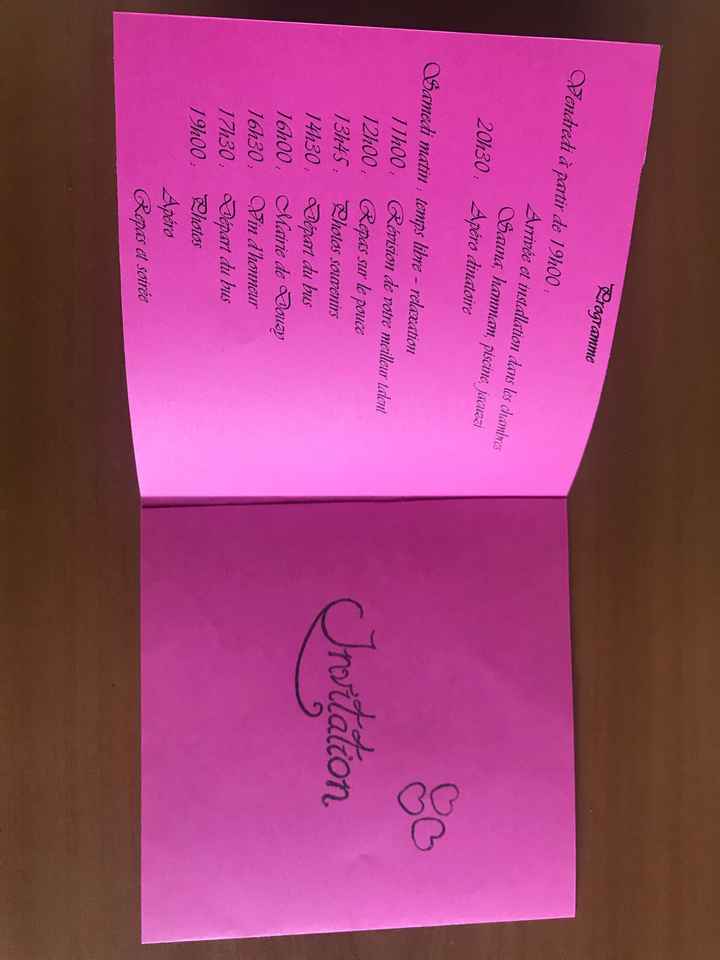 Programme
Vendredi à partir de 19h00 :
Arrivée et installation dans les chambres
Sauna, hammam, piscine, jacuzzi
20h30 : Apéro dinatoire
Samedi matin : temps libre - relaxation
11h00 : Révision de votre meilleur talent
12h00 : Repas sur le pouce
13h45 : Photos souvenirs
14h30 : Départ du bus
16h00 : Mairie de Douzy
16h30 : Vin d'honneur
17h30 : Départ du bus
19h00 : Photos
Apéro
Repas et soirée
Invitation